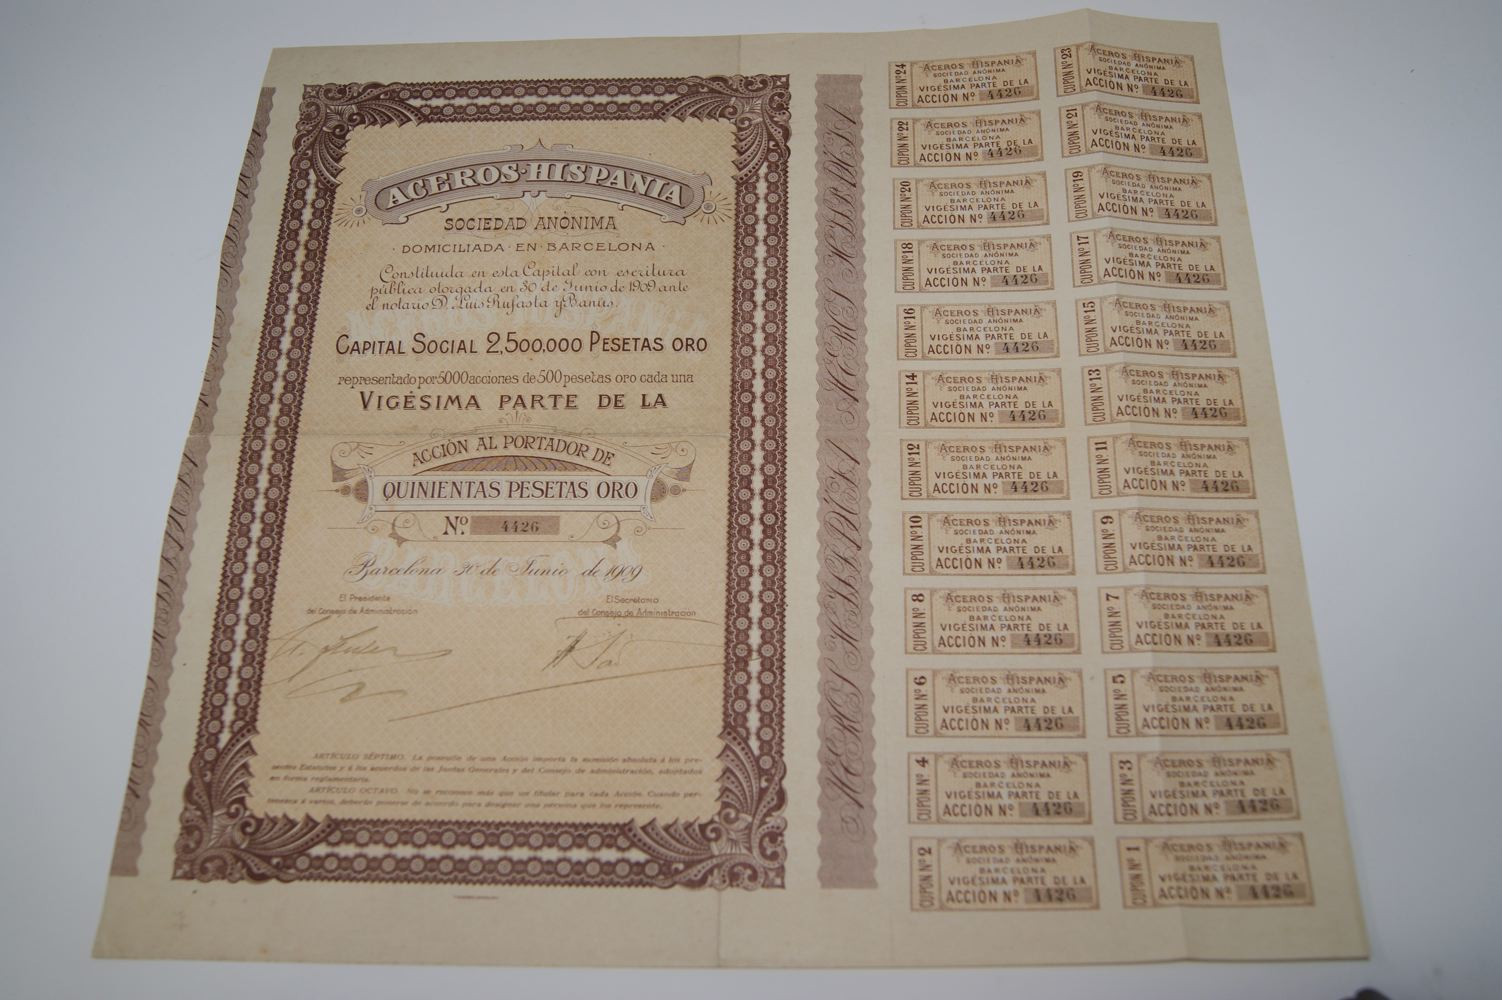 ACEROS-HISPANIA
SOCIEDAD ANÓNIMA
· DOMICILIADA · EN · BARCELONA ·
Constituida en esta Capital con escritura
pública otorgada en 30 de Junio de 1909 ante
el notario D. Luis Rufasta y Banús.
CAPITAL SOCIAL 2,500,000 PESETAS ORO
representado por 5000 acciones de 500 pesetas oro cada una
VIGÉSIMA PARTE DE LA
ACCIÓN AL PORTADOR DE
QUINIENTAS PESETAS ORO
Nº 4426
Barcelona 30 de Junio de 1909
El Presidente
del Consejo de Administracion
El Secretario
del Consejo de Administracion
ARTÍCULO SÉPTIMO. La posesión de una Acción importa la sumisión absoluta á los pre-
sentes Estatutos y á los acuerdos de las Juntas Generales y del Consejo de administración, adoptados
en forma reglamentaria.
ARTÍCULO OCTAVO. No se reconoce más que un titular para cada Acción. Cuando per-
tenezca á varios, deberán ponerse de acuerdo para designar una persona que los represente.
CUPON Nº 24
ACEROS HISPANIA
SOCIEDAD ANÓNIMA
BARCELONA
VIGÉSIMA PARTE DE LA
ACCIÓN Nº 4426
CUPON Nº 23
ACEROS HISPANIA
SOCIEDAD ANÓNIMA
BARCELONA
VIGÉSIMA PARTE DE LA
ACCIÓN Nº 4426
CUPON Nº 22
ACEROS HISPANIA
SOCIEDAD ANÓNIMA
BARCELONA
VIGÉSIMA PARTE DE LA
ACCIÓN Nº 4426
CUPON Nº 21
ACEROS HISPANIA
SOCIEDAD ANÓNIMA
BARCELONA
VIGÉSIMA PARTE DE LA
ACCIÓN Nº 4426
CUPON Nº 20
ACEROS HISPANIA
SOCIEDAD ANÓNIMA
BARCELONA
VIGÉSIMA PARTE DE LA
ACCIÓN Nº 4426
CUPON Nº 19
ACEROS HISPANIA
SOCIEDAD ANÓNIMA
BARCELONA
VIGÉSIMA PARTE DE LA
ACCIÓN Nº 4426
CUPON Nº 18
ACEROS HISPANIA
SOCIEDAD ANÓNIMA
BARCELONA
VIGÉSIMA PARTE DE LA
ACCIÓN Nº 4426
CUPON Nº 17
ACEROS HISPANIA
SOCIEDAD ANÓNIMA
BARCELONA
VIGÉSIMA PARTE DE LA
ACCIÓN Nº 4426
CUPON Nº 16
ACEROS HISPANIA
SOCIEDAD ANÓNIMA
BARCELONA
VIGÉSIMA PARTE DE LA
ACCIÓN Nº 4426
CUPON Nº 15
ACEROS HISPANIA
SOCIEDAD ANÓNIMA
BARCELONA
VIGÉSIMA PARTE DE LA
ACCIÓN Nº 4426
CUPON Nº 14
ACEROS HISPANIA
SOCIEDAD ANÓNIMA
BARCELONA
VIGÉSIMA PARTE DE LA
ACCIÓN Nº 4426
CUPON Nº 13
ACEROS HISPANIA
SOCIEDAD ANÓNIMA
BARCELONA
VIGÉSIMA PARTE DE LA
ACCIÓN Nº 4426
CUPON Nº 12
ACEROS HISPANIA
SOCIEDAD ANÓNIMA
BARCELONA
VIGÉSIMA PARTE DE LA
ACCIÓN Nº 4426
CUPON Nº 11
ACEROS HISPANIA
SOCIEDAD ANÓNIMA
BARCELONA
VIGÉSIMA PARTE DE LA
ACCIÓN Nº 4426
CUPON Nº 10
ACEROS HISPANIA
SOCIEDAD ANÓNIMA
BARCELONA
VIGÉSIMA PARTE DE LA
ACCIÓN Nº 4426
CUPON Nº 9
ACEROS HISPANIA
SOCIEDAD ANÓNIMA
BARCELONA
VIGÉSIMA PARTE DE LA
ACCIÓN Nº 4426
CUPON Nº 8
ACEROS HISPANIA
SOCIEDAD ANÓNIMA
BARCELONA
VIGÉSIMA PARTE DE LA
ACCIÓN Nº 4426
CUPON Nº 7
ACEROS HISPANIA
SOCIEDAD ANÓNIMA
BARCELONA
VIGÉSIMA PARTE DE LA
ACCIÓN Nº 4426
CUPON Nº 6
ACEROS HISPANIA
SOCIEDAD ANÓNIMA
BARCELONA
VIGÉSIMA PARTE DE LA
ACCIÓN Nº 4426
CUPON Nº 5
ACEROS HISPANIA
SOCIEDAD ANÓNIMA
BARCELONA
VIGÉSIMA PARTE DE LA
ACCIÓN Nº 4426
CUPON Nº 4
ACEROS HISPANIA
SOCIEDAD ANÓNIMA
BARCELONA
VIGÉSIMA PARTE DE LA
ACCIÓN Nº 4426
CUPON Nº 3
ACEROS HISPANIA
SOCIEDAD ANÓNIMA
BARCELONA
VIGÉSIMA PARTE DE LA
ACCIÓN Nº 4426
CUPON Nº 2
ACEROS HISPANIA
SOCIEDAD ANÓNIMA
BARCELONA
VIGÉSIMA PARTE DE LA
ACCIÓN Nº 4426
CUPON Nº 1
ACEROS HISPANIA
SOCIEDAD ANÓNIMA
BARCELONA
VIGÉSIMA PARTE DE LA
ACCIÓN Nº 4426